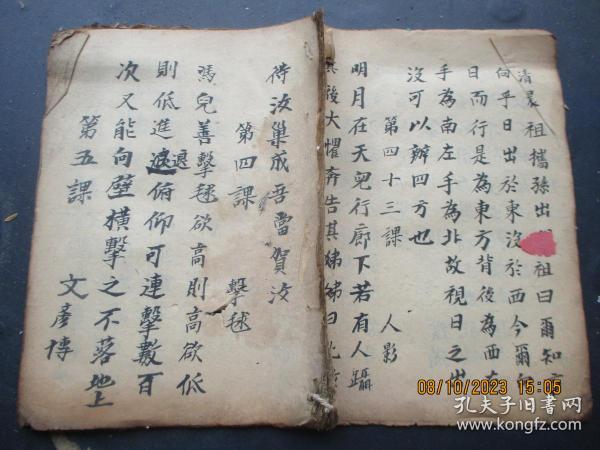 清晨祖攜孫出祖曰爾知
向乎日出於東沒於西今爾
日而行是為東方背後為西
手為南左手為北故視日之出
沒可以辨四方也
第四十三課 人影
明月在天兒行廊下若有人躡
其後大懼奔告其姊姊曰此
待汝巢成吾當賀汝
第四課 擊毬
馮兒善擊毬欲高則高欲低
則低進退俯仰可連擊數百
次又能向壁橫擊之不落地上
第五課 文彥博
08/10/2023 15:05
孔夫子旧书网
www.kongfz.com